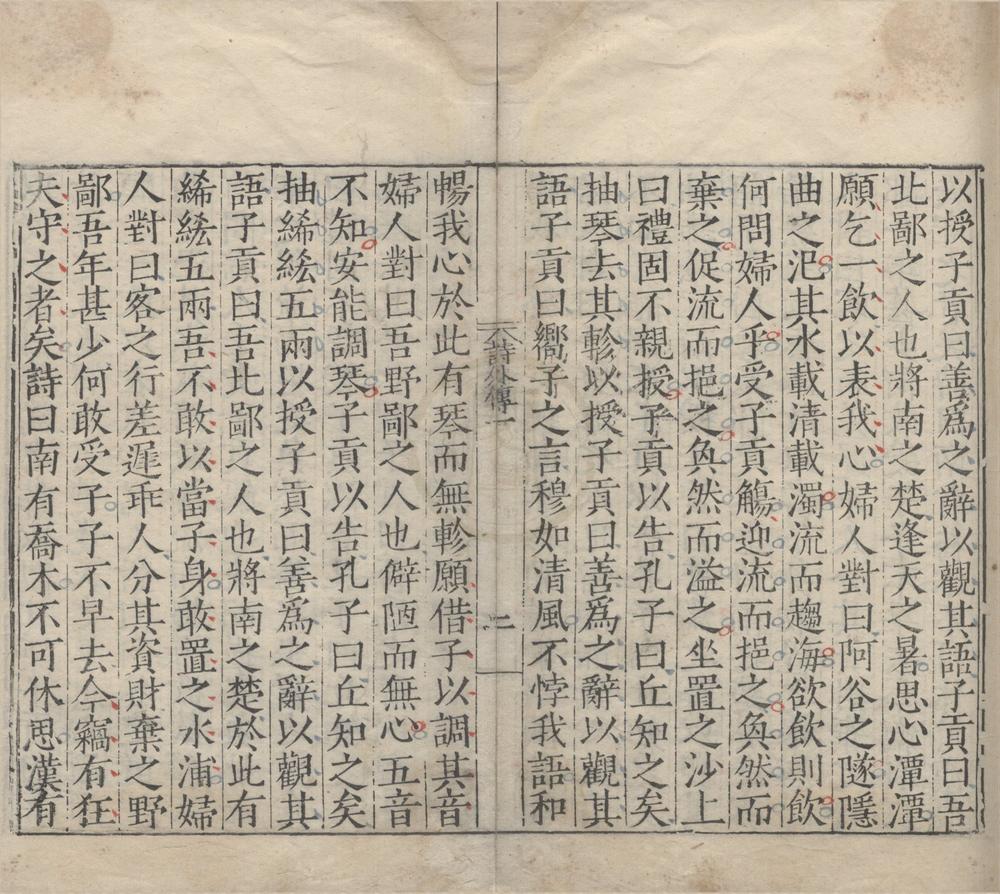 以授子貢曰善爲之辭以觀其語子貢曰吾
北鄙之人也將南之楚逢天之暑思心潭潭
願乞一飲以表我心婦人對曰阿谷之隧隱
曲之汜其水載清載濁流而趨海欲飲則飲
何問婦人乎受子貢觴迎流而挹之奐然而
棄之促流而挹之奐然而溢之坐置之沙上
曰禮固不親授子貢以告孔子曰丘知之矣
抽琴去其軫以授子貢曰善爲之辭以觀其
語子貢曰嚮子之言穆如清風不悖我語和
詩外傳一
二
暢我心於此有琴而無軫願借子以調其音
婦人對曰吾野鄙之人也僻陋而無心五音
不知安能調琴子貢以告孔子曰丘知之矣
抽絺綌五兩以授子貢曰善爲之辭以觀其
語子貢曰吾北鄙之人也將南之楚於此有
絺綌五兩吾不敢以當子身敢置之水浦婦
人對曰客之行差遲乖人分其資財棄之野
鄙吾年甚少何敢受子子不早去今竊有狂
夫守之者矣詩曰南有喬木不可休思漢有